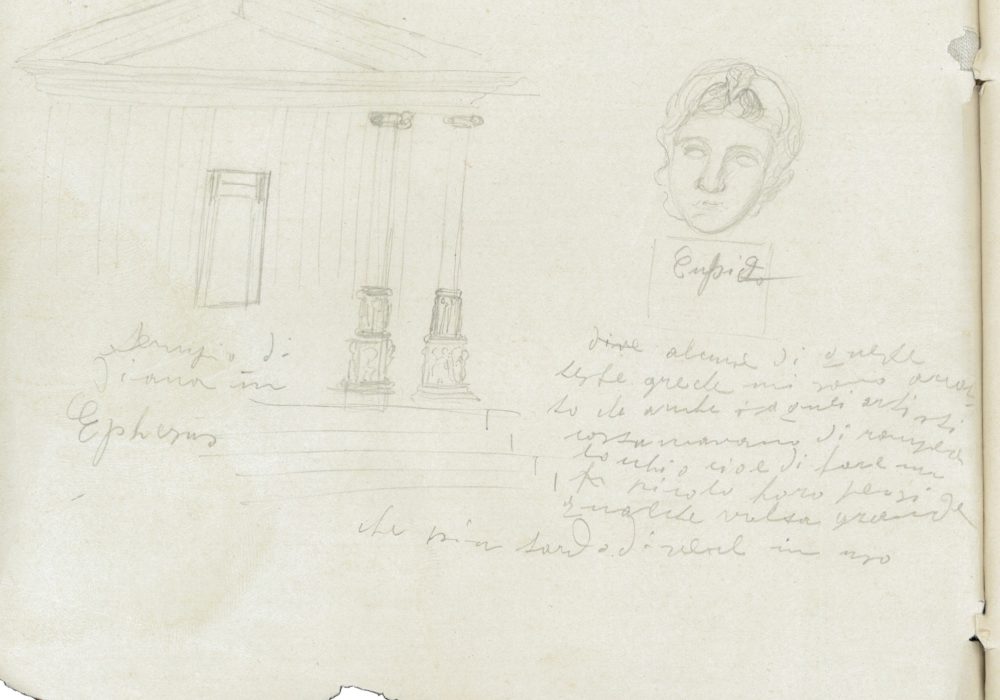 Tempio di
Diana in
Ephesus
Cupid
alcune di queste
teste greche mi sono
to che anche i quei artisti
costumavano di rompere
l'ochio cioè di fare un
picolo foro
qualche volta grande
che più tardo di venne in uso